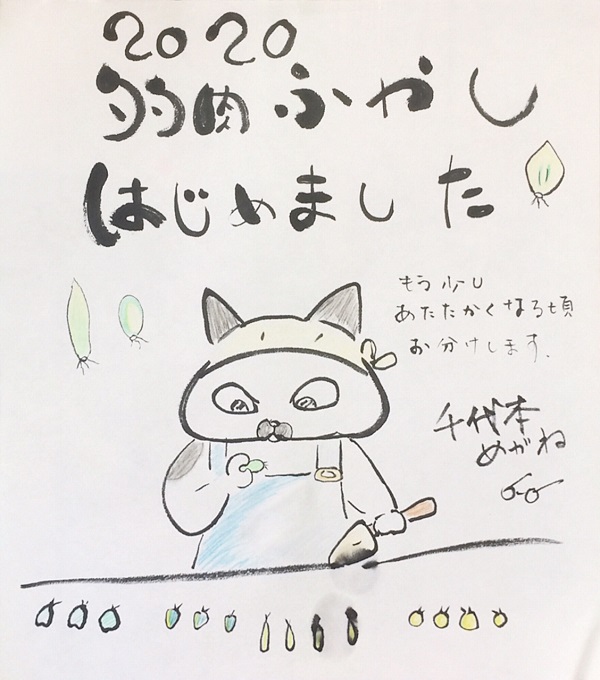 2020
多肉ふやし
はじめました
もう少し
あたたかくなる頃
お分けします.
千代本
めがね